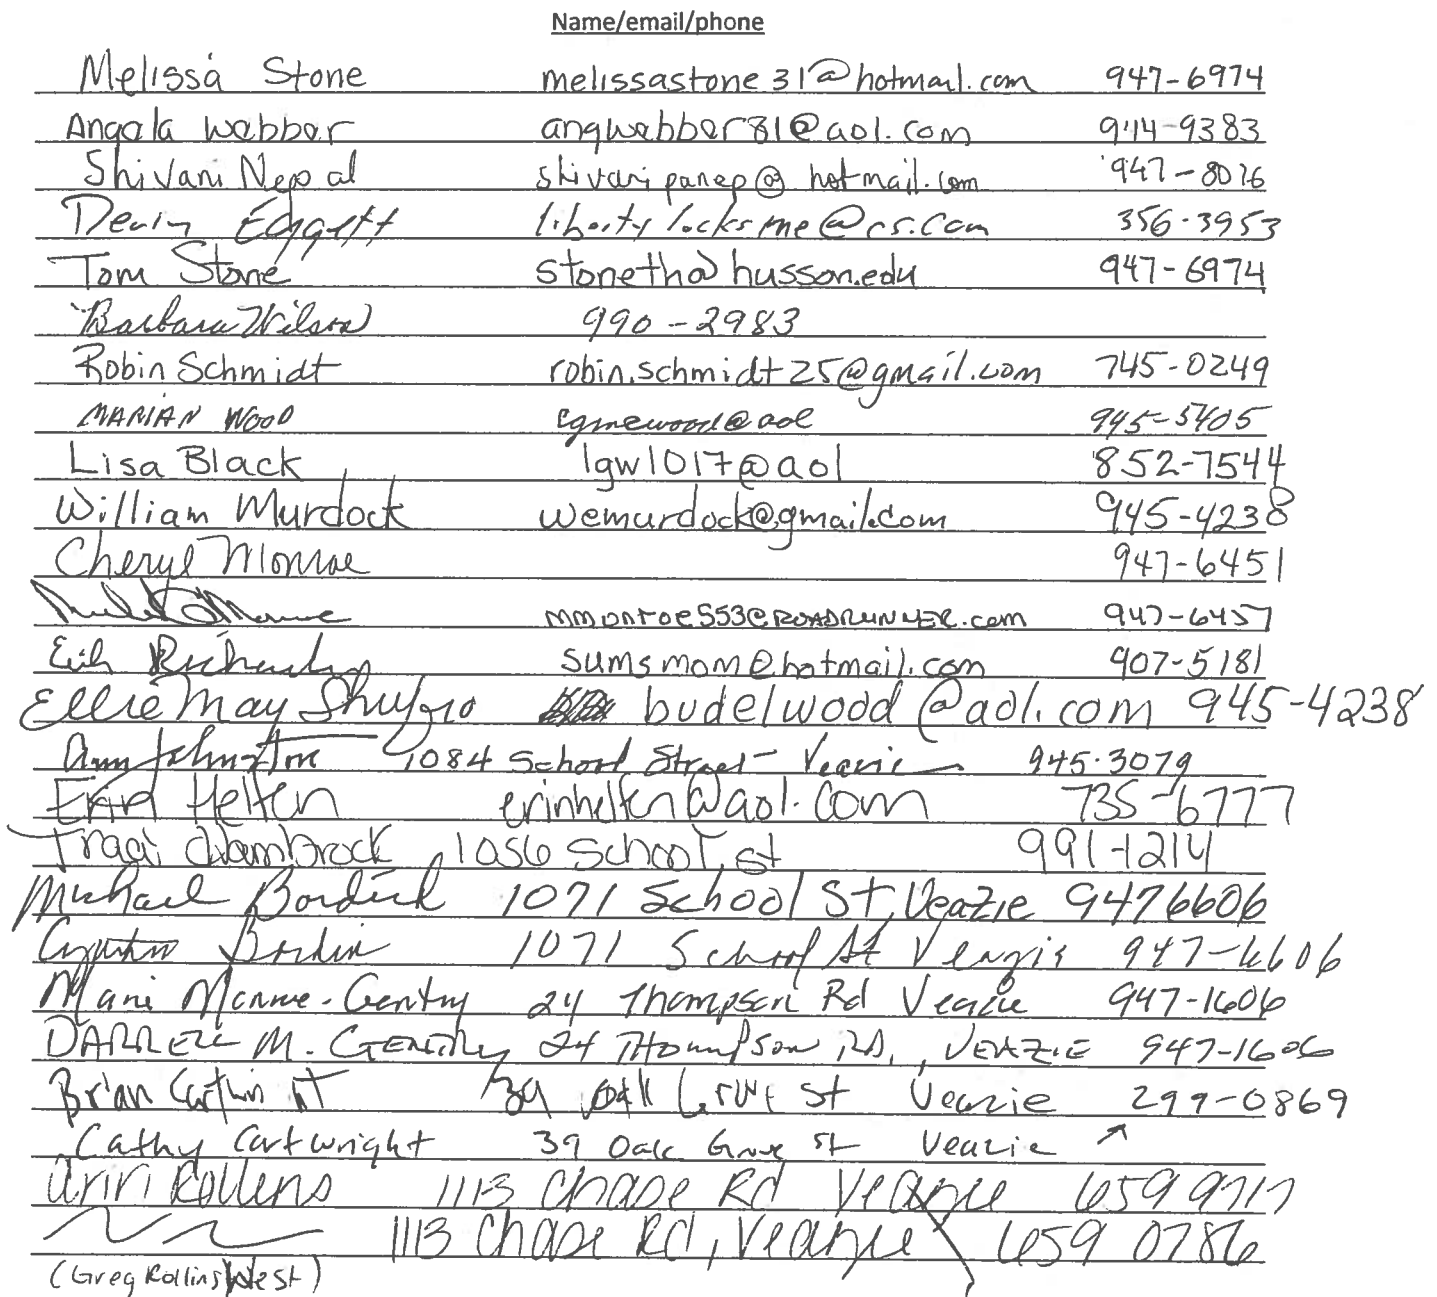 Name/email/phone
Melissa Stone melissastone31@hotmail.com 947-6974
Angela Webber angwebber81@aol.com 944-9383
Shivani Nepal shivanipanep@hotmail.com 947-8026
Devin Eggett libertylocksme@cs.com 356-3953
Tom Stone stoneth@husson.edu 947-6974
Barbara Wilson 990-2983
Robin Schmidt robin.schmidt25@gmail.com 745-0249
MARIAN WOOD cgmewood@aol 945-5405
Lisa Black lgw1017@aol 852-7544
William Murdock wemurdock@gmail.com 945-4238
Cheryl Monroe 947-6451
mmonroe553@ROADRUNNER.com 947-6457
Richards sumsmom@hotmail.com 907-5181
Ellie May Shufro budelwood@aol.com 945-4238
Ann Johnston 1084 School Street - Veazie 945-3079
Erin Helfen erinhelfen@aol.com 735-6777
Traci Hambrock 1056 School St 991-1214
Michael Bordick 1071 School St, Veazie 9476606
1071 School St Veazie 947-6606
Monroe-Gentry 24 Thompson Rd Veazie 947-1606
DARRELL M. GENTRY 24 THOMPSON RD., VEAZIE 947-1606
Brian 39 Oak Grove St Veazie 299-0869
Cathy Cartwright 39 Oak Grove St Veazie ↗
Rollins 1113 Chase Rd Veazie 659 9717
1113 Chase Rd, Veazie 659 0786
(Greg Rollins West)